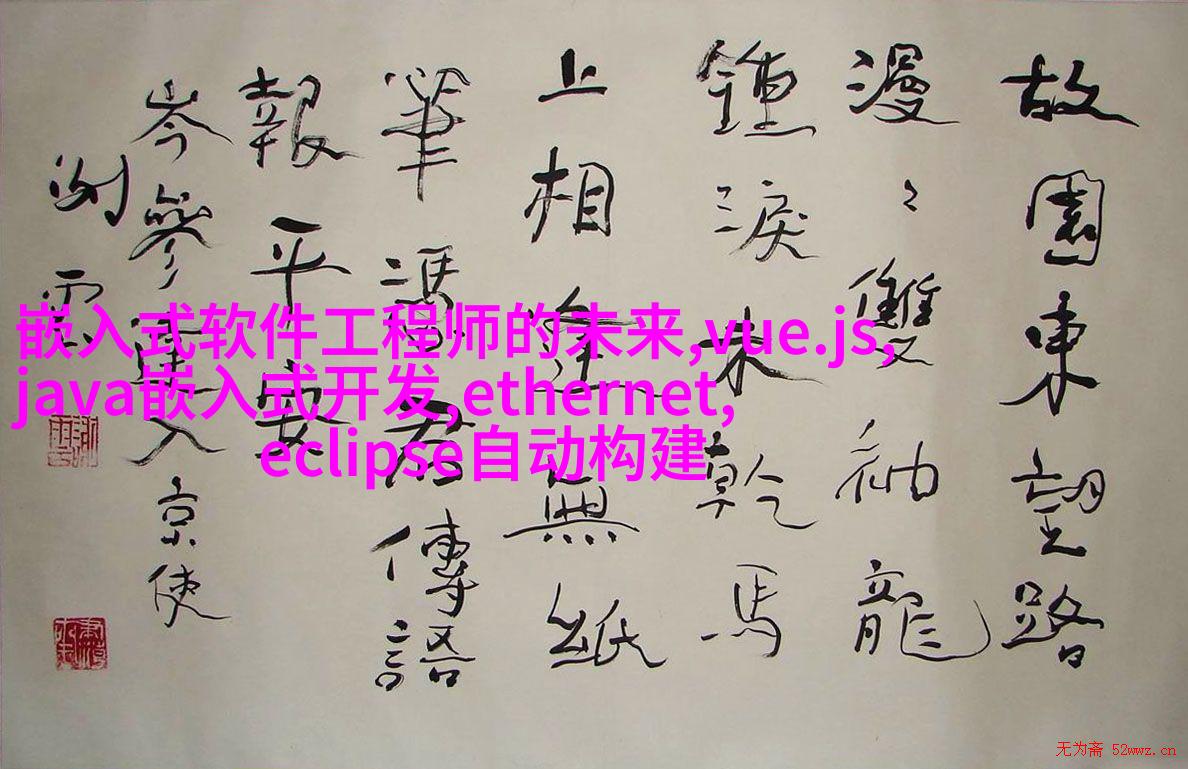 故園東望路
漫漫雙袖龍
鍾淚未乾馬
上相逢無紙
筆憑君傳語
報平安
岑參 入京使
谢雲
嵌入式软件工程师的未来,vue.js,
java嵌入式开发,ethernet,
eclipse自动构建
无为斋 52wwz.cn